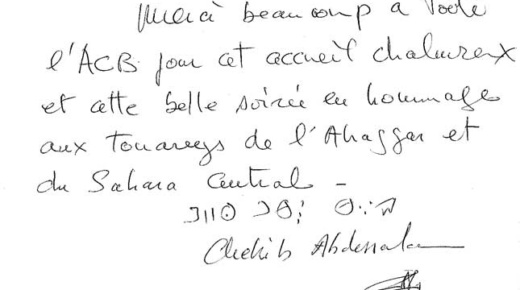 Merci beaucoup à toute
l'ACB pour cet accueil chaleureux
et cette belle soirée en hommage
aux Touaregs de l'Ahaggar et
du Sahara Central –
Chekib Abdessalam